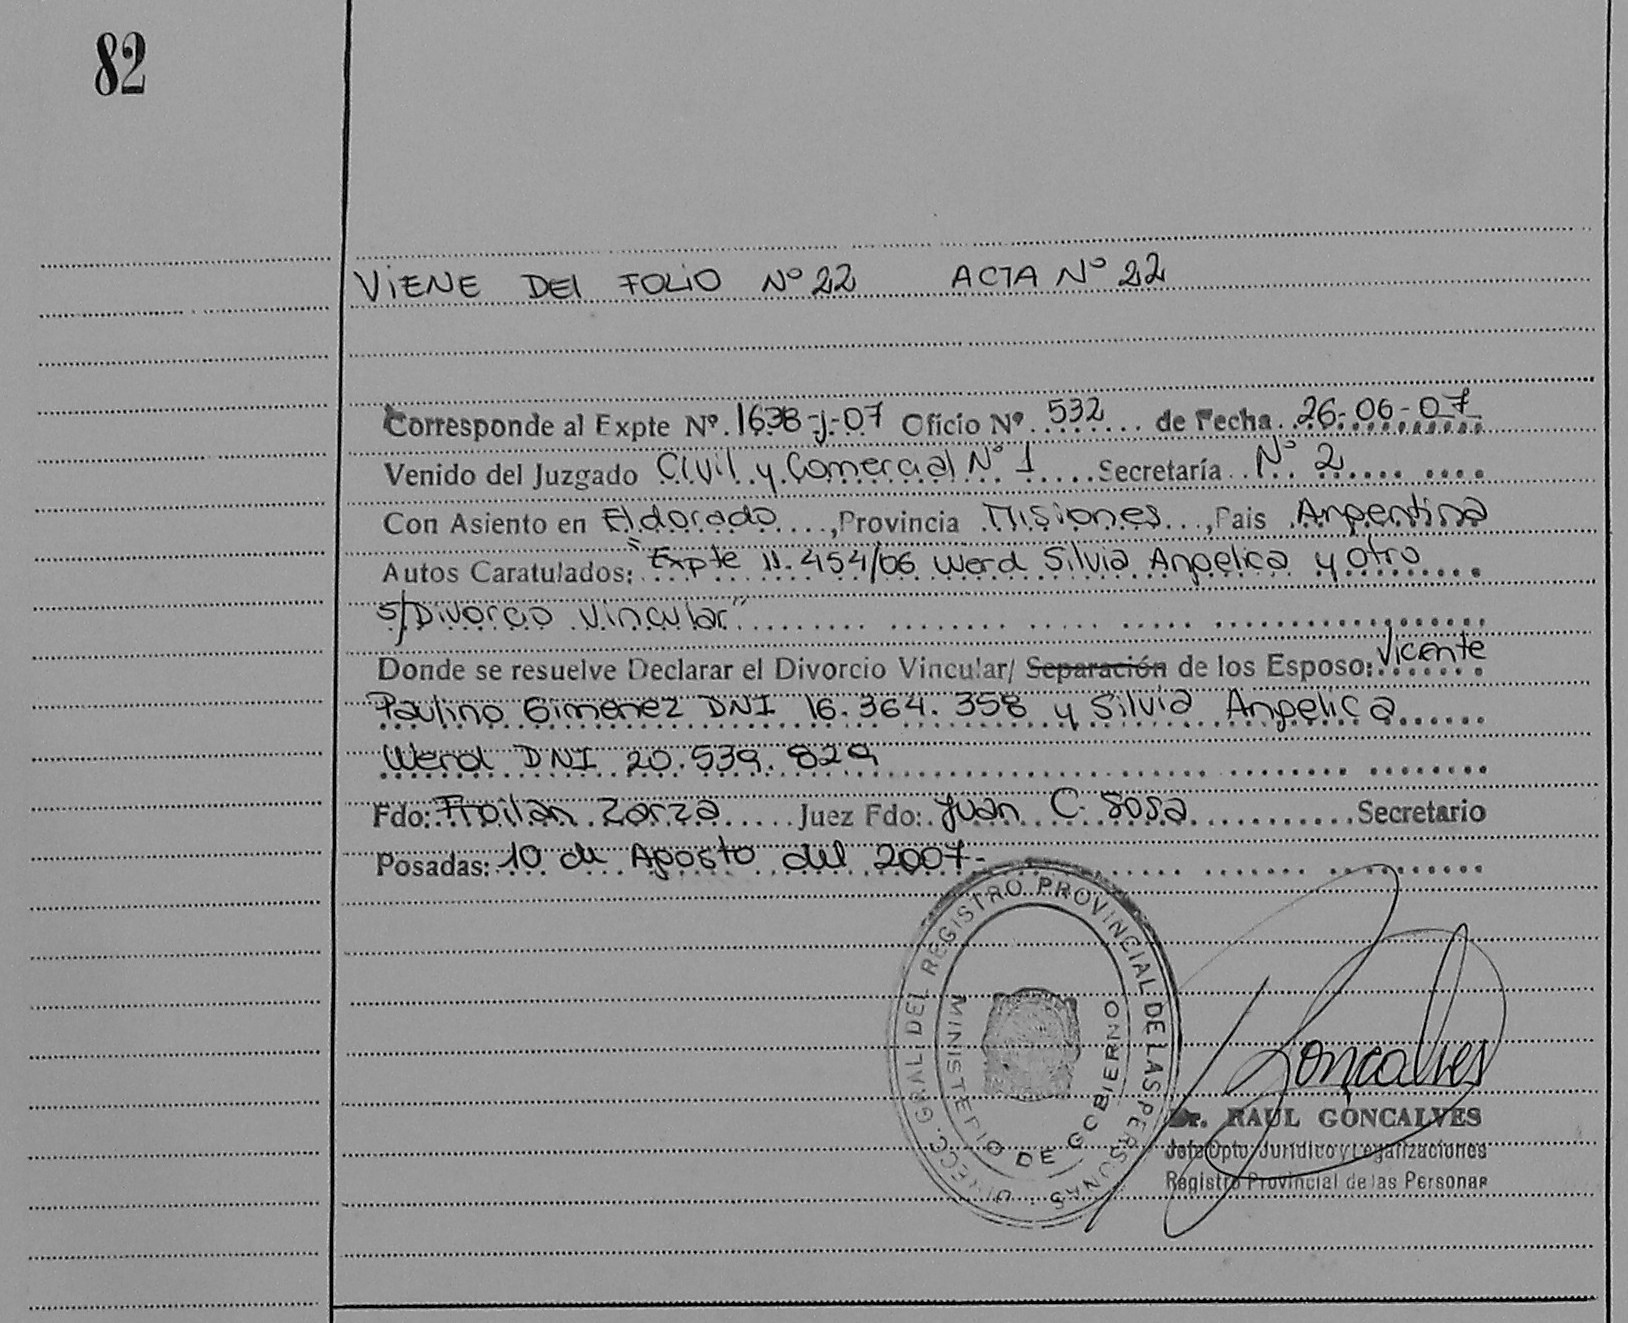 82
VIENE DEL FOLIO Nº 22 ACTA Nº 22
Corresponde al Expte Nº. 1638-J-07 Oficio Nº. 532 de Fecha. 26-06-07
Venido del Juzgado Civil y Comercial Nº 1 Secretaría Nº 2
Con Asiento en Eldorado, Provincia Misiones, Pais Angentina
Autos Caratulados: "Expte 11.454/06 Werd Silvia Angelica y otro
s/Divorcio Vincular"
Donde se resuelve Declarar el Divorcio Vincular/ Separación de los Esposo: Vicente
Paulino Gimenez DNI 16.364.358 y Silvia Angelica
Werd DNI 20.539.829
Fdo: Froilan Zarza Juez Fdo: Juan C. Sosa Secretario
Posadas: 10 de Agosto del 2007-
DIRECC. GRAL. DEL REGISTRO PROVINCIAL DE LAS PERSONAS
MINISTERIO DE GOBIERNO
Goncalves
Dr. RAUL GONCALVES
Jefe Dpto. Jurídico y Legalizaciones
Registro Provincial de las Personas